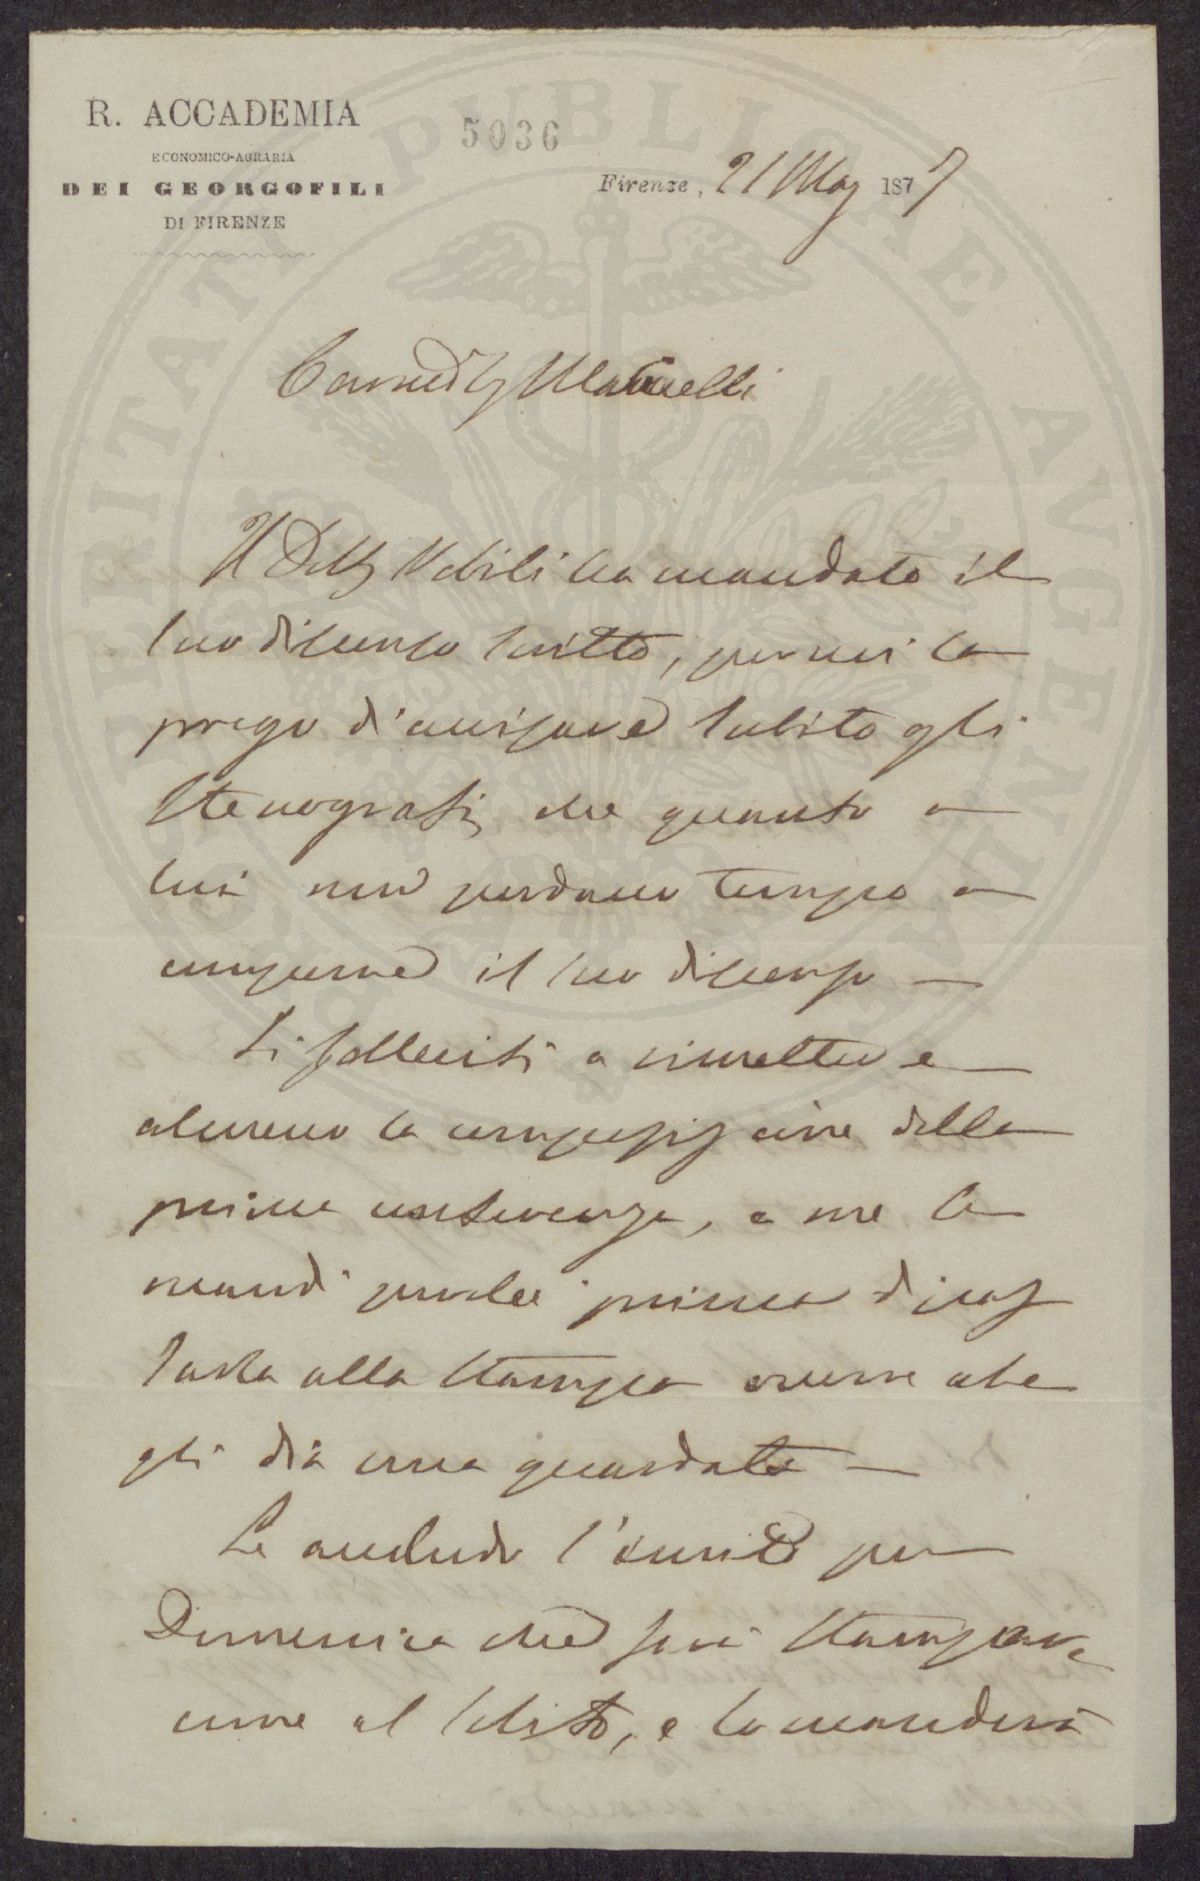 R. ACCADEMIA
ECONOMICO-AGRARIA
DEI GEORGOFILI
DI FIRENZE
5036
Firenze, 21 Mag 1877
PROSPERITATI PUBLICAE AUGENDAE
Il Dott Nobili ha mandato il
suo discorso scritto, per cui la
prego d'avvisare subito gli
stenografi, che quanto a
lui non perdano tempo a
comporre il suo discorso —
Li solleciti a rimettere
almeno la composizione della
prima conferenza, e me la
mandi perché prima di
darla alla stampa occorre che
gli dia una guardata —
Le accludo l'invito per
Domenica che farà stampare
come al solito, e lo manderà